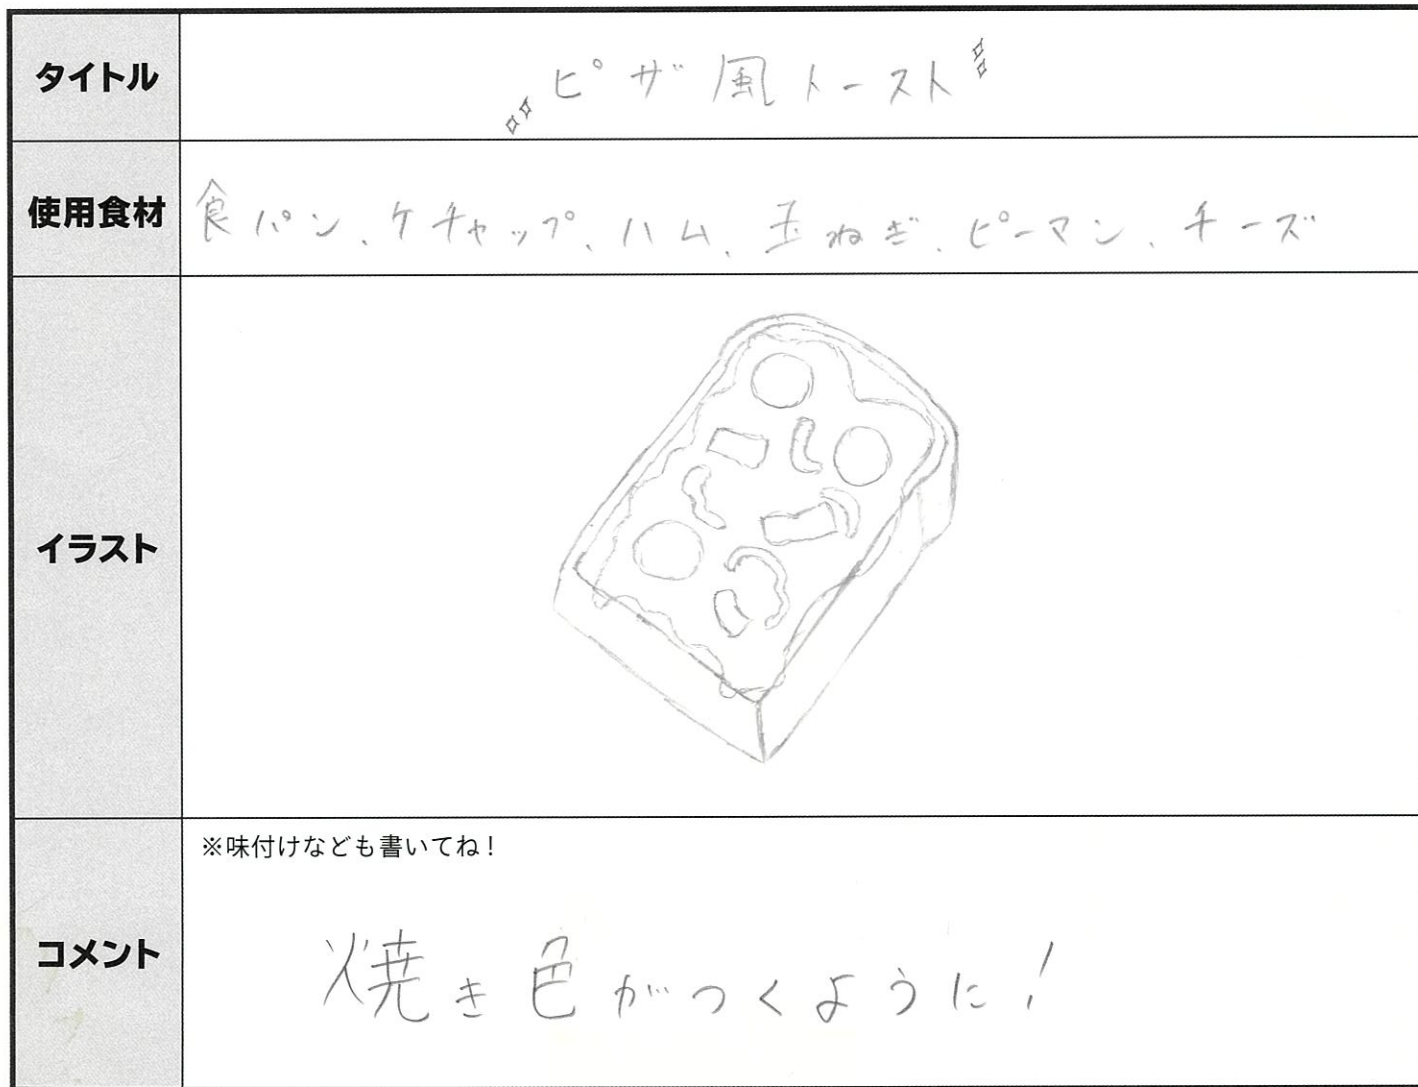 タイトル
ピザ風トースト
使用食材
食パン、ケチャップ、ハム、玉ねぎ、ピーマン、チーズ
イラスト
コメント
※味付けなども書いてね！
焼き色がつくように！